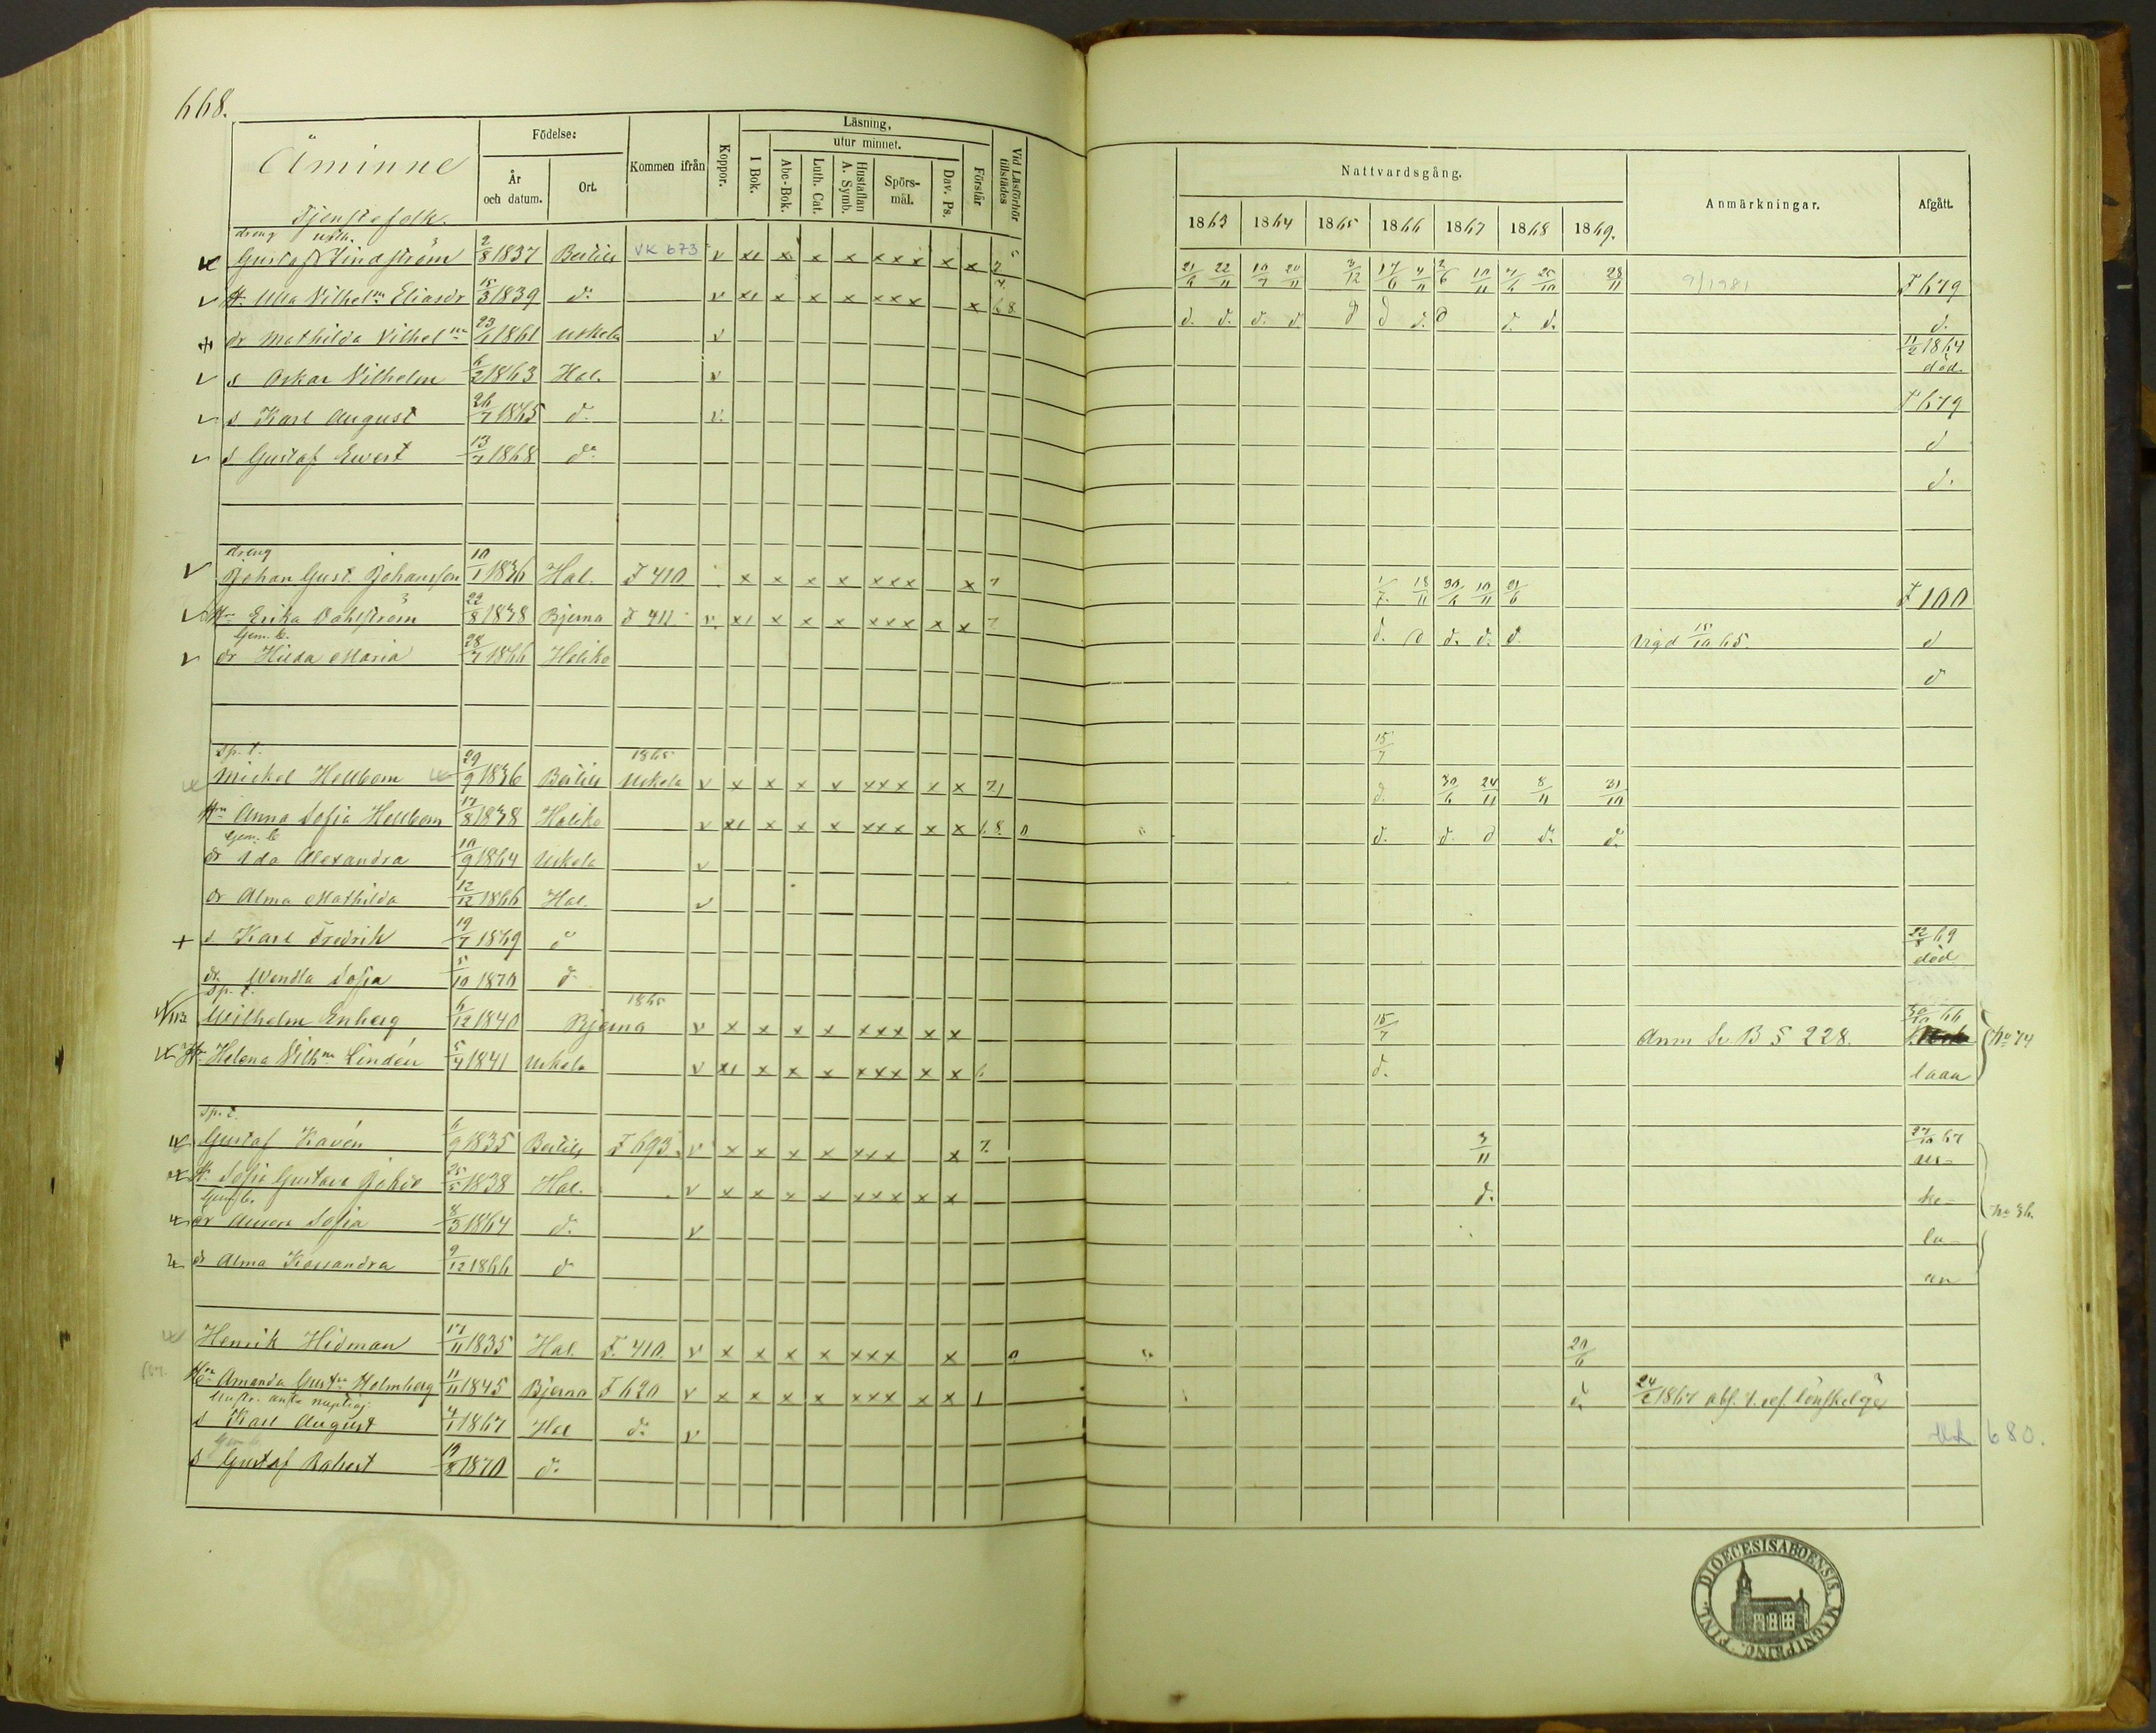 668.
Åminne
Tjenstefolk.
Födelse:
År och datum.
Ort.
Kommen ifrån
Koppor.
Läsning,
utur minnet.
I Bok.
Abc-Bok.
Luth. Cat.
Hustaflan A. Symb.
Spörs-mål.
Dav. Ps.
Förstår
Vid Läsförhör tillstädes
Nattvardsgång.
1863 1864 1865 1866 1867 1868 1869.
Anmärkningar.
Afgått.
dreng
Gustaf Lindström 2/8 1837 VK 673 v x1 x x x xxx x x 21/6 22/11 10/7 20/11 2/12 17/6 4/11 2/6 10/11 25/10 28/11 9/1981 F 679
H. Ulla Vilhelm Eliasdr 15/3 1839 do v x1 x x x xxx x 68 d. d. d. d. d d d. d d. d. d.
dr Mathilda Vilhelma 1861 Uskela v 11/2 1864 död.
s Oskar Vilhelm 6/2 1863 Hal. v F 679
s Karl August 26/7 1865 d. v. d
s Gustaf Ewert 13/7 1868 do d.
dreng
Johan Gust. Johansson 10/1 1836 Hal. F 410 x x x x xxx x 7 1/7. 18/11 30/6 10/11 21/6 F 100
Hu Erika Dahlström 22/8 1838 Bjerna F 411 v. x1 x x x xxx x x 7 d. d d. d. d. vigd 15/10 65. d
Gem. b.
dr Hilda Maria 28/7 1866 Haliko d
Sp. t. 1865 15/7
Mickel Hellbom 29/9 1836 Uskela v x x x x xxx x x 71 d. 30/6 24/11 8/11 31/10
Hu Anna Sofia Hellbom 17/8 1838 Haliko v x1 x x x xxx x x 68 d. d. d d. d.
Gem. b
dr Ida Alexandra 10/9 1864 Uskela v
dr Alma Mathilda 12/12 1866 Hal. v
s. Karl Fredrik 19/7 1869 d 22/8 69 död
dr Wendla Sofia 5/10 1870 d.
Sp. t. 1865
Wilhelm Enberg 6/12 1840 Bjerna v x x x x xxx x x 15/7 Anm Sv. B S 228. 30/10 66 No 74
Hu Helena Vilhma Lindén 5/4 1841 Uskela v x1 x x x xxx x x 6 d. laan
Sp. t.
Gustaf Kavén 6/9 1835 F 693. v x x x x xxx x 7. 3/11 27/10 67 us-
H. Sofia Gustava Johdr 25/5 1838 Hal. v x x x x xxx x x d. ke-
Gem. b.
dr Amanda Sofia 8/3 1864 d. v la- No 36.
dr Alma Kassandra 9/12 1866 d an
Henrik Hidman 17/11 1835 Hal. F. 410. v x x x x xxx x 20/6
Hu Amanda Gustva Holmberg 11/11 1845 Bjerna F 620 v x x x x xxx x x 1 d. 24/2 1867 abs. f. ref. lönskeläge
s Karl August 1867 Hal d. v 680.
Gem b.
s Gustaf Robert 19/8 1870 d.
DIOECESIS ABOENSIS. MAGNI PRINC. FINL.